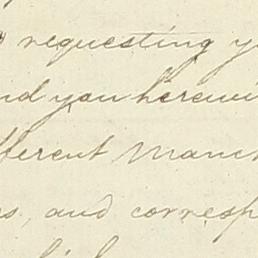 requesting y
nd you herewi
fferent Manch
s, and corresp